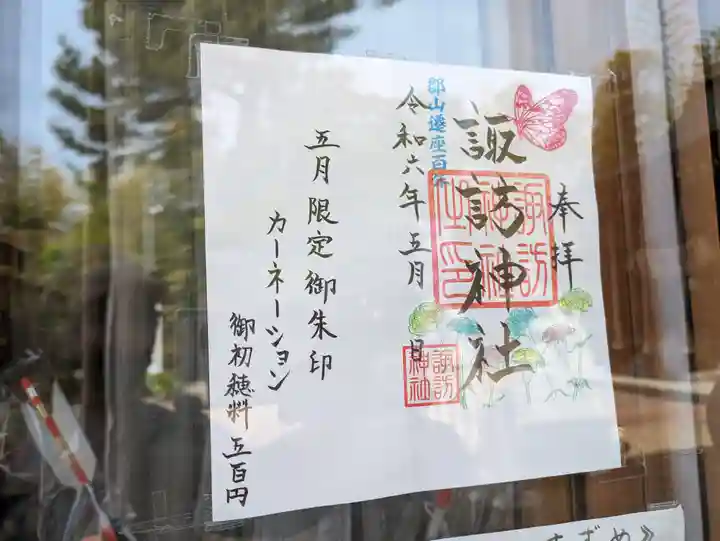 奉拝
諏訪神社
諏訪神社之印
郡山遷座百年
令和六年五月 日
諏訪神社
五月限定御朱印
カーネーション
御初穂料五百円